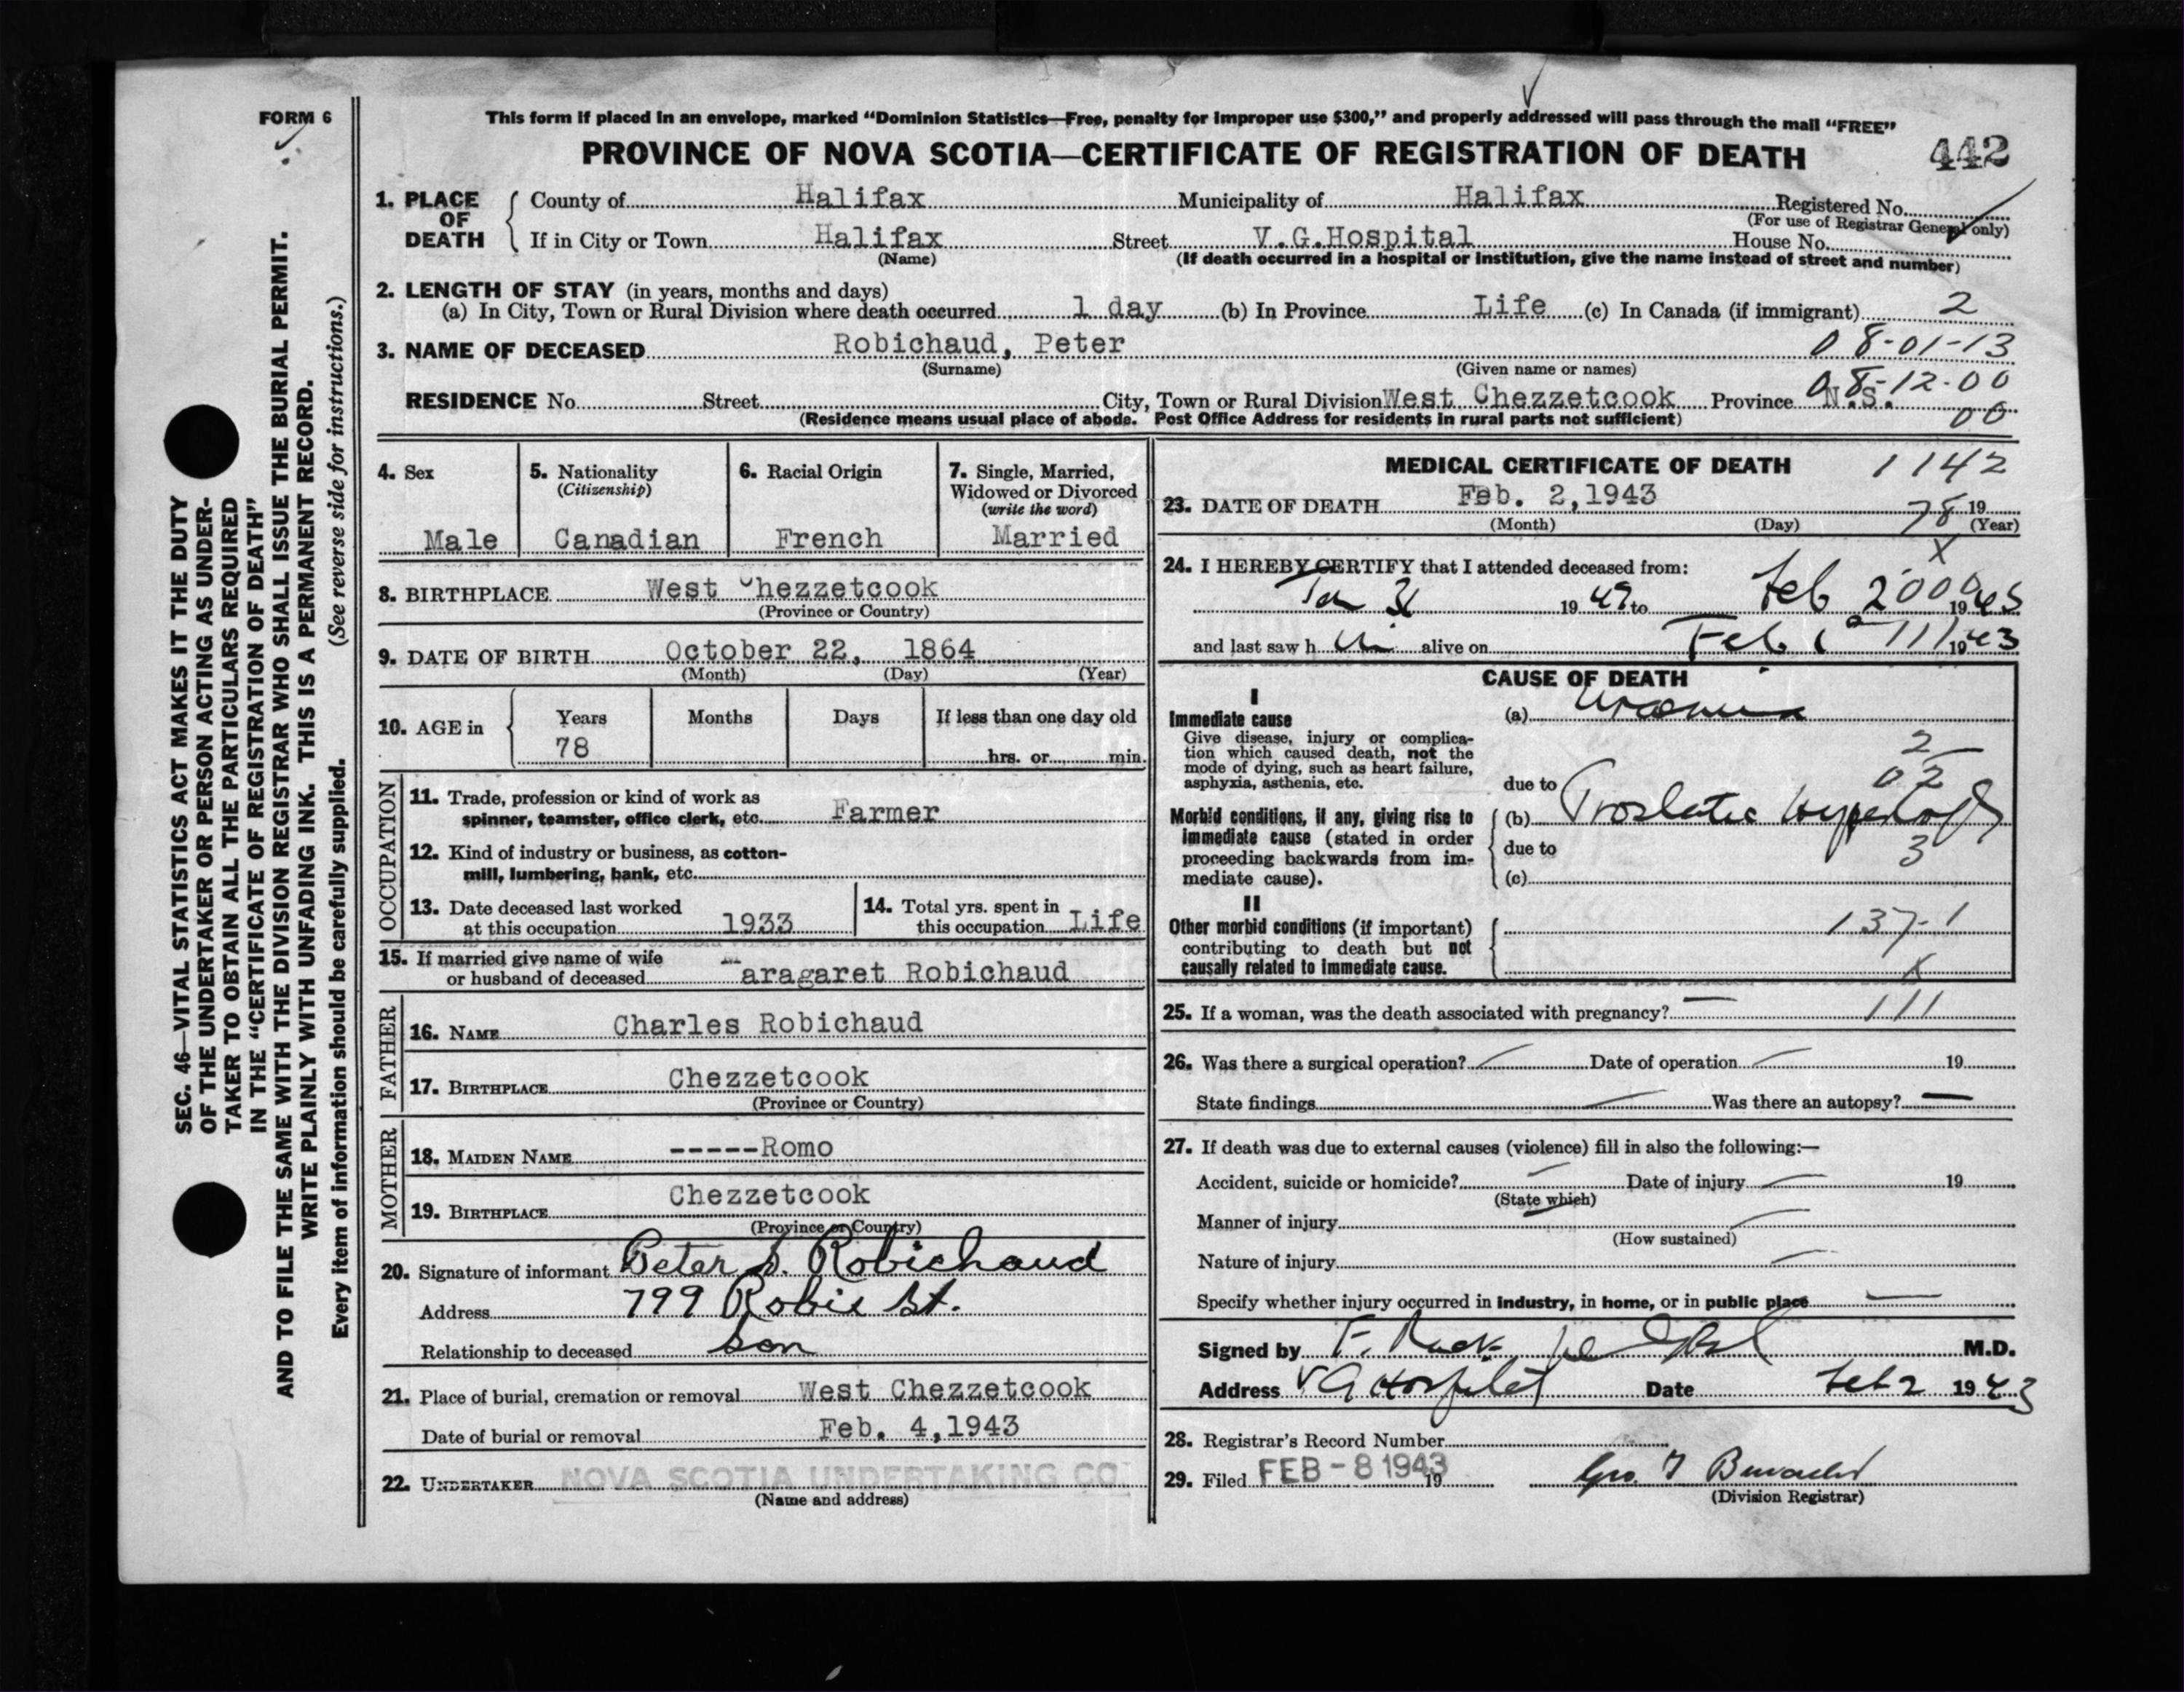 FORM 6
This form if placed in an envelope, marked “Dominion Statistics—Free, penalty for improper use $300,” and properly addressed will pass through the mail “FREE”
PROVINCE OF NOVA SCOTIA—CERTIFICATE OF REGISTRATION OF DEATH 442
1. PLACE OF DEATH
County of Halifax Municipality of Halifax Registered No.
(For use of Registrar General only)
If in City or Town Halifax Street V.G.Hospital House No.
(Name) (If death occurred in a hospital or institution, give the name instead of street and number)
2. LENGTH OF STAY (in years, months and days)
(a) In City, Town or Rural Division where death occurred 1 day (b) In Province Life (c) In Canada (if immigrant) 2
3. NAME OF DECEASED Robichaud, Peter 08-01-13
(Surname) (Given name or names)
RESIDENCE No. Street City, Town or Rural Division West Chezzetcook Province N.S. 08-12-00
(Residence means usual place of abode. Post Office Address for residents in rural parts not sufficient) 00
4. Sex
Male
5. Nationality
(Citizenship)
Canadian
6. Racial Origin
French
7. Single, Married,
Widowed or Divorced
(write the word)
Married
8. BIRTHPLACE West Chezzetcook
(Province or Country)
9. DATE OF BIRTH October 22, 1864
(Month) (Day) (Year)
10. AGE in
Years Months Days If less than one day old
78 hrs. or min.
OCCUPATION
11. Trade, profession or kind of work as
spinner, teamster, office clerk, etc. Farmer
12. Kind of industry or business, as cotton-
mill, lumbering, bank, etc.
13. Date deceased last worked
at this occupation 1933
14. Total yrs. spent in
this occupation Life
15. If married give name of wife
or husband of deceased Maragaret Robichaud
FATHER
16. NAME Charles Robichaud
17. BIRTHPLACE Chezzetcook
(Province or Country)
MOTHER
18. MAIDEN NAME -----Romo
19. BIRTHPLACE Chezzetcook
(Province or Country)
20. Signature of informant Peter S. Robichaud
Address 799 Robie St.
Relationship to deceased Son
21. Place of burial, cremation or removal West Chezzetcook
Date of burial or removal Feb. 4,1943
22. UNDERTAKER NOVA SCOTIA UNDERTAKING CO.
(Name and address)
MEDICAL CERTIFICATE OF DEATH 1142
23. DATE OF DEATH Feb. 2,1943 78 19
(Month) (Day) (Year)
X
24. I HEREBY CERTIFY that I attended deceased from:
Jan 31 19 to Feb 2 000 19
and last saw h im alive on Feb 1 111 1943
CAUSE OF DEATH
I
Immediate cause
Give disease, injury or complica-
tion which caused death, not the
mode of dying, such as heart failure,
asphyxia, asthenia, etc.
(a) Uraemia
2
02
due to
Morbid conditions, if any, giving rise to
immediate cause (stated in order
proceeding backwards from im-
mediate cause).
(b) Prostatic Hypertrophy
due to 3
(c)
II
Other morbid conditions (if important)
contributing to death but not
causally related to immediate cause.
137-1
X
25. If a woman, was the death associated with pregnancy? — 111
26. Was there a surgical operation? — Date of operation — 19
State findings — Was there an autopsy? —
27. If death was due to external causes (violence) fill in also the following:—
Accident, suicide or homicide? — Date of injury — 19
(State which)
Manner of injury —
(How sustained)
Nature of injury —
Specify whether injury occurred in industry, in home, or in public place —
Signed by F. M.D.
Address V G Hospital Date Feb 2 1943
28. Registrar's Record Number
29. Filed FEB - 8 1943 19 Geo.
(Division Registrar)
SEC. 46—VITAL STATISTICS ACT MAKES IT THE DUTY
OF THE UNDERTAKER OR PERSON ACTING AS UNDER-
TAKER TO OBTAIN ALL THE PARTICULARS REQUIRED
IN THE “CERTIFICATE OF REGISTRATION OF DEATH”
AND TO FILE THE SAME WITH THE DIVISION REGISTRAR WHO SHALL ISSUE THE BURIAL PERMIT.
WRITE PLAINLY WITH UNFADING INK. THIS IS A PERMANENT RECORD.
Every item of information should be carefully supplied. (See reverse side for instructions.)